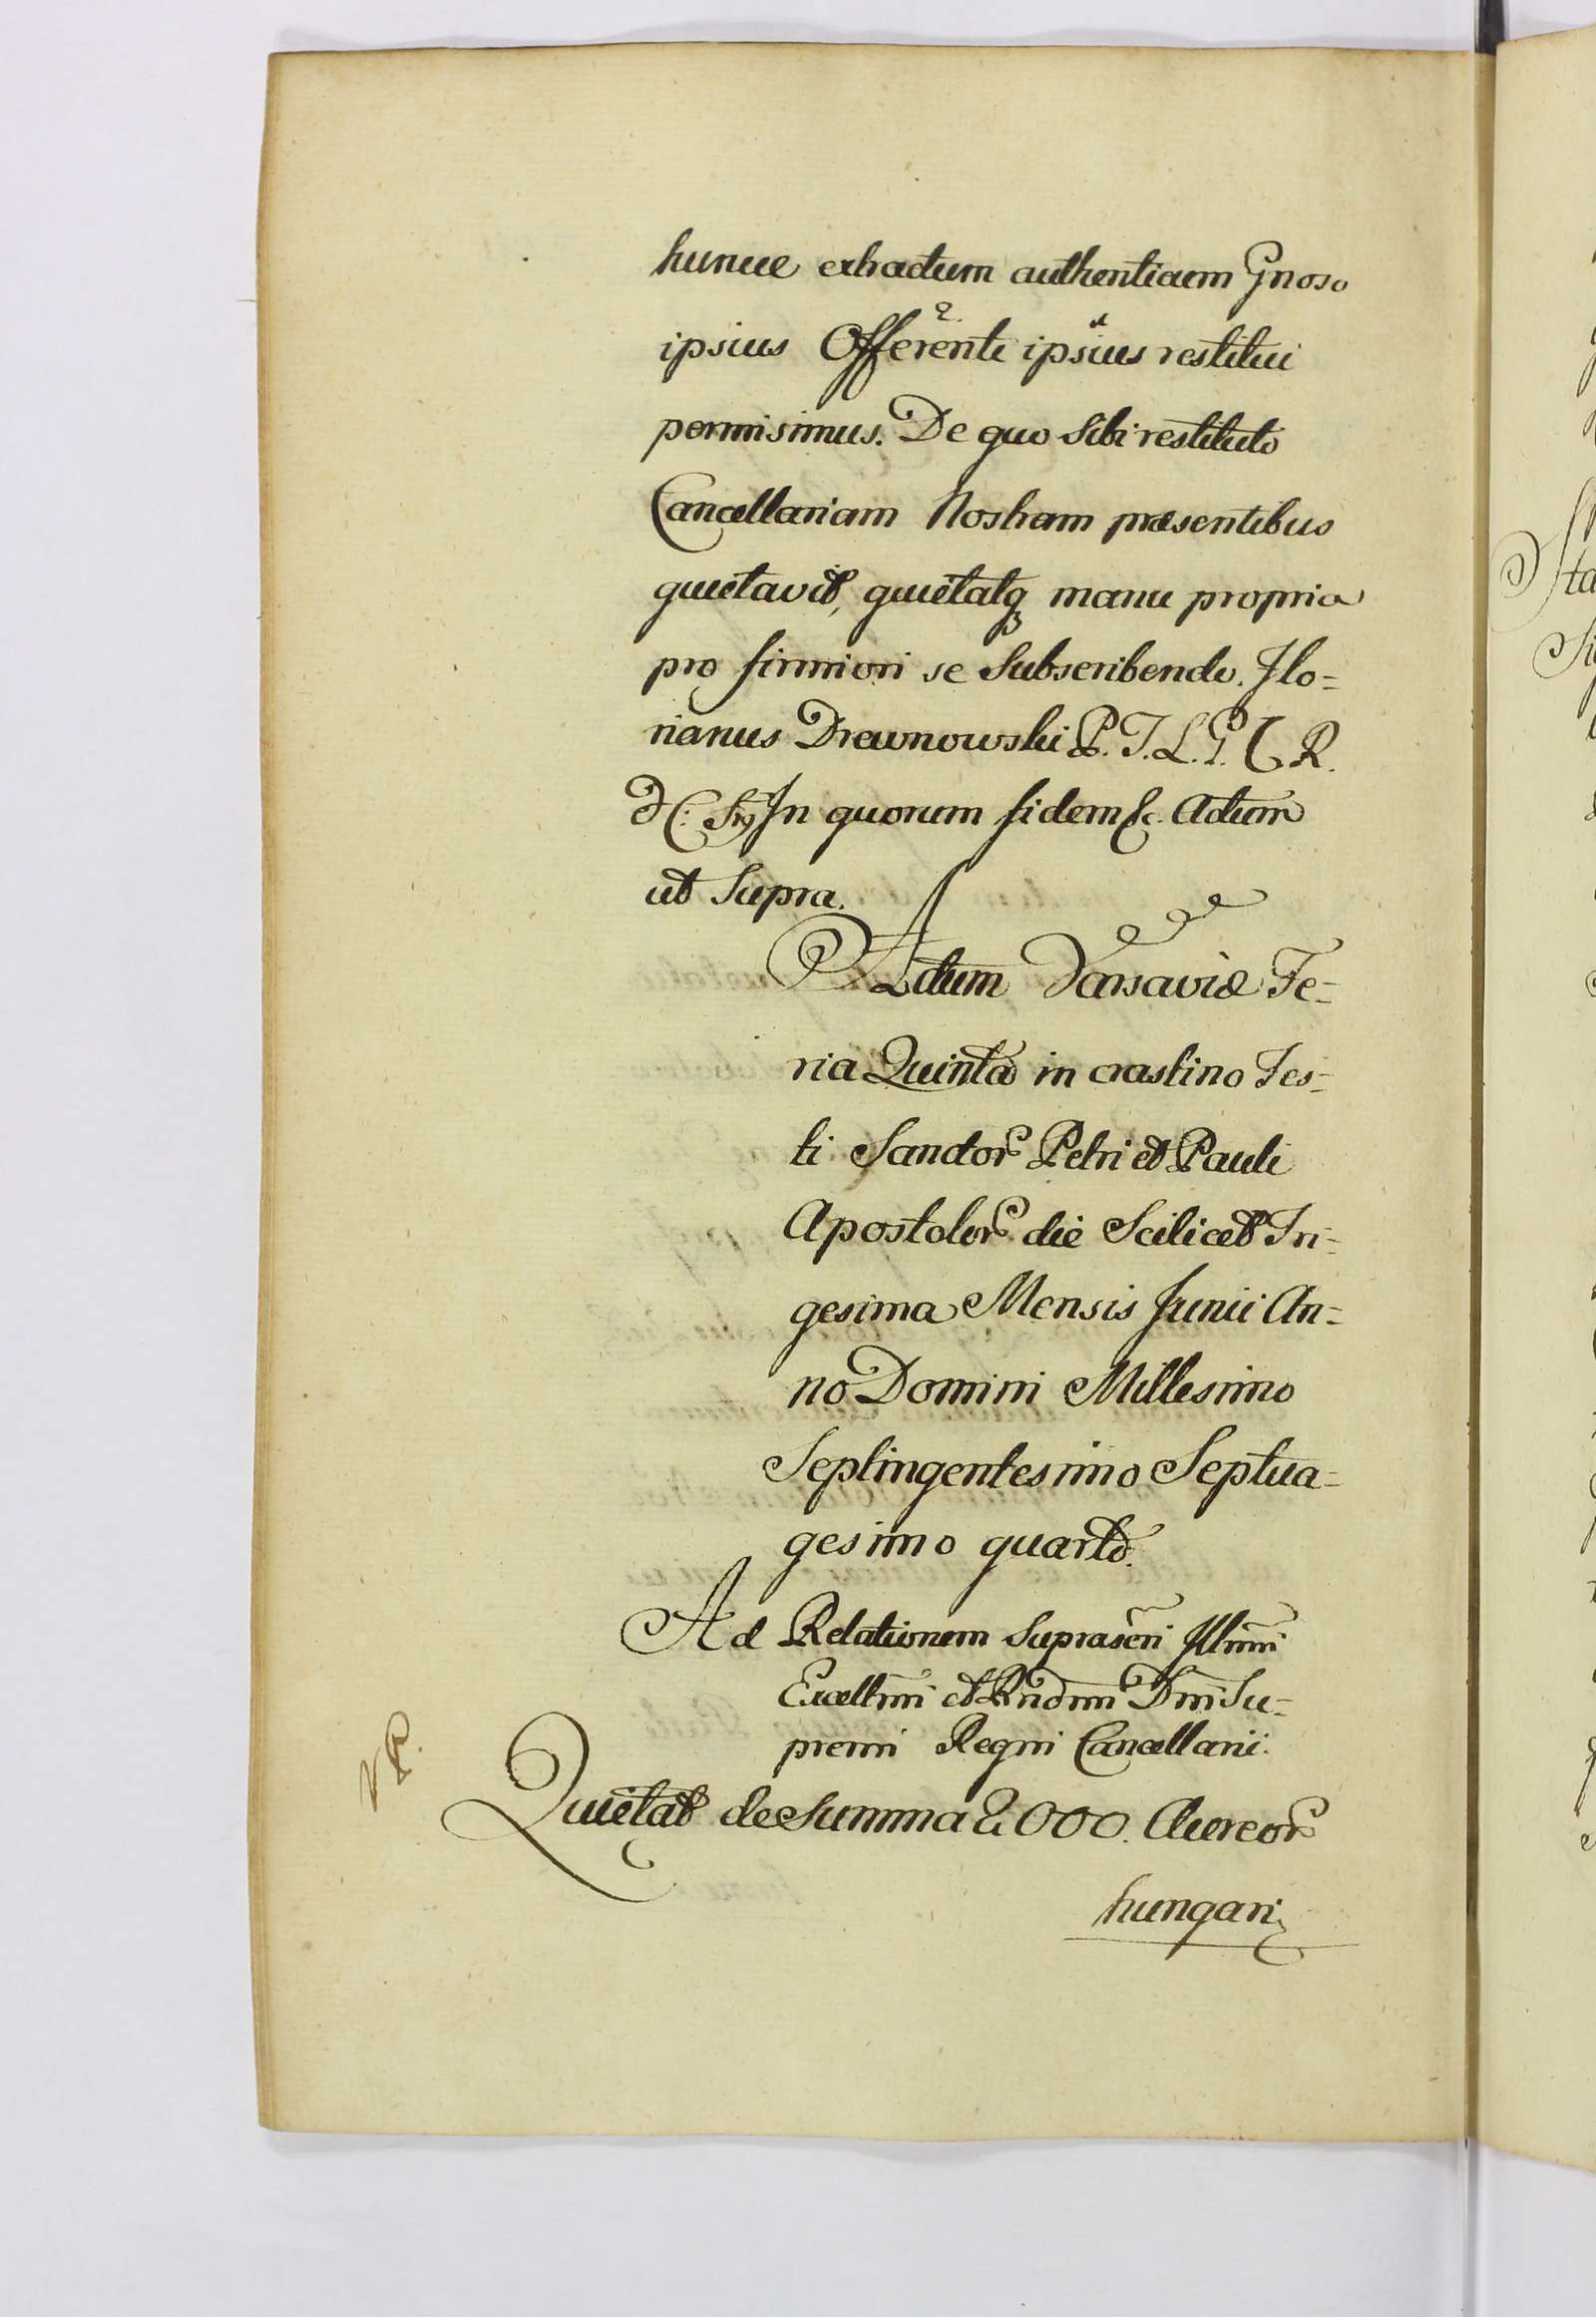 huncce extractum authenticum Gnoso
ipsius Offerenti ipsius restitui
permisimus. De quo sibi restituto
Cancellariam Nostram præsentibus
quietavit, quietatq manu propria
pro firmiori se Subscribendo. Flo=
rianus Drewnowski P. T. L. G. C. R.
In quorum fidem &c. Actum
ut Supra.
Actum Varsaviæ Fe=
ria Quinta in crastino Fes=
ti Sanctor Petri et Pauli
Apostolor die Scilicet Tri=
gesima Mensis Junii An=
no Domini Millesimo
Septingentesimo Septua=
gesimo quarto.
Ad Relationem Suprascri Illmi
Excellmi et Rndmi Dni Su=
premi Regni Cancellarii.
Quietat de Summa 2000. Aureor
hungari